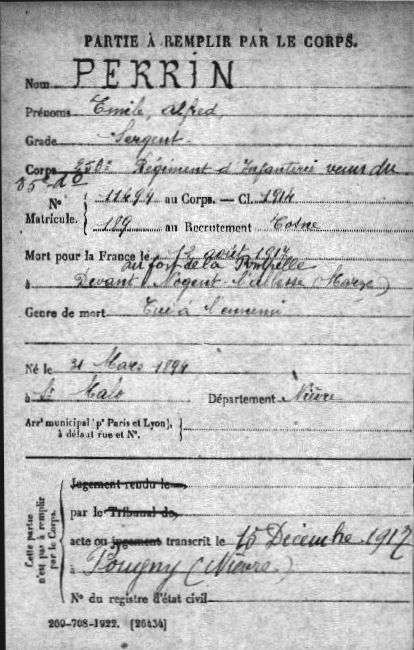 PARTIE À REMPLIR PAR LE CORPS.
Nom PERRIN
Prénoms Emile, Alfred,
Grade Sergent
Corps 250e Régiment d'Infanterie venu du
85e do
No 11494 au Corps. — Cl. 1914
Matricule. 189 au Recrutement Cosne
Mort pour la France le 12 août 1917
au fort de la Pompelle
à Devant Nogent l'Abbesse (Marne)
Genre de mort Tué à l'ennemi
Né le 31 Mars 1894
à St Malo Département Nièvre
Arrt municipal (pr Paris et Lyon),
à défaut rue et No.
Cette partie
n'est pas à remplir
par le Corps.
Jugement rendu le
par le Tribunal de
acte ou jugement transcrit le 15 Décembre 1917
à Pougny (Nièvre)
No du registre d'état civil
269-708-1922. [26434]